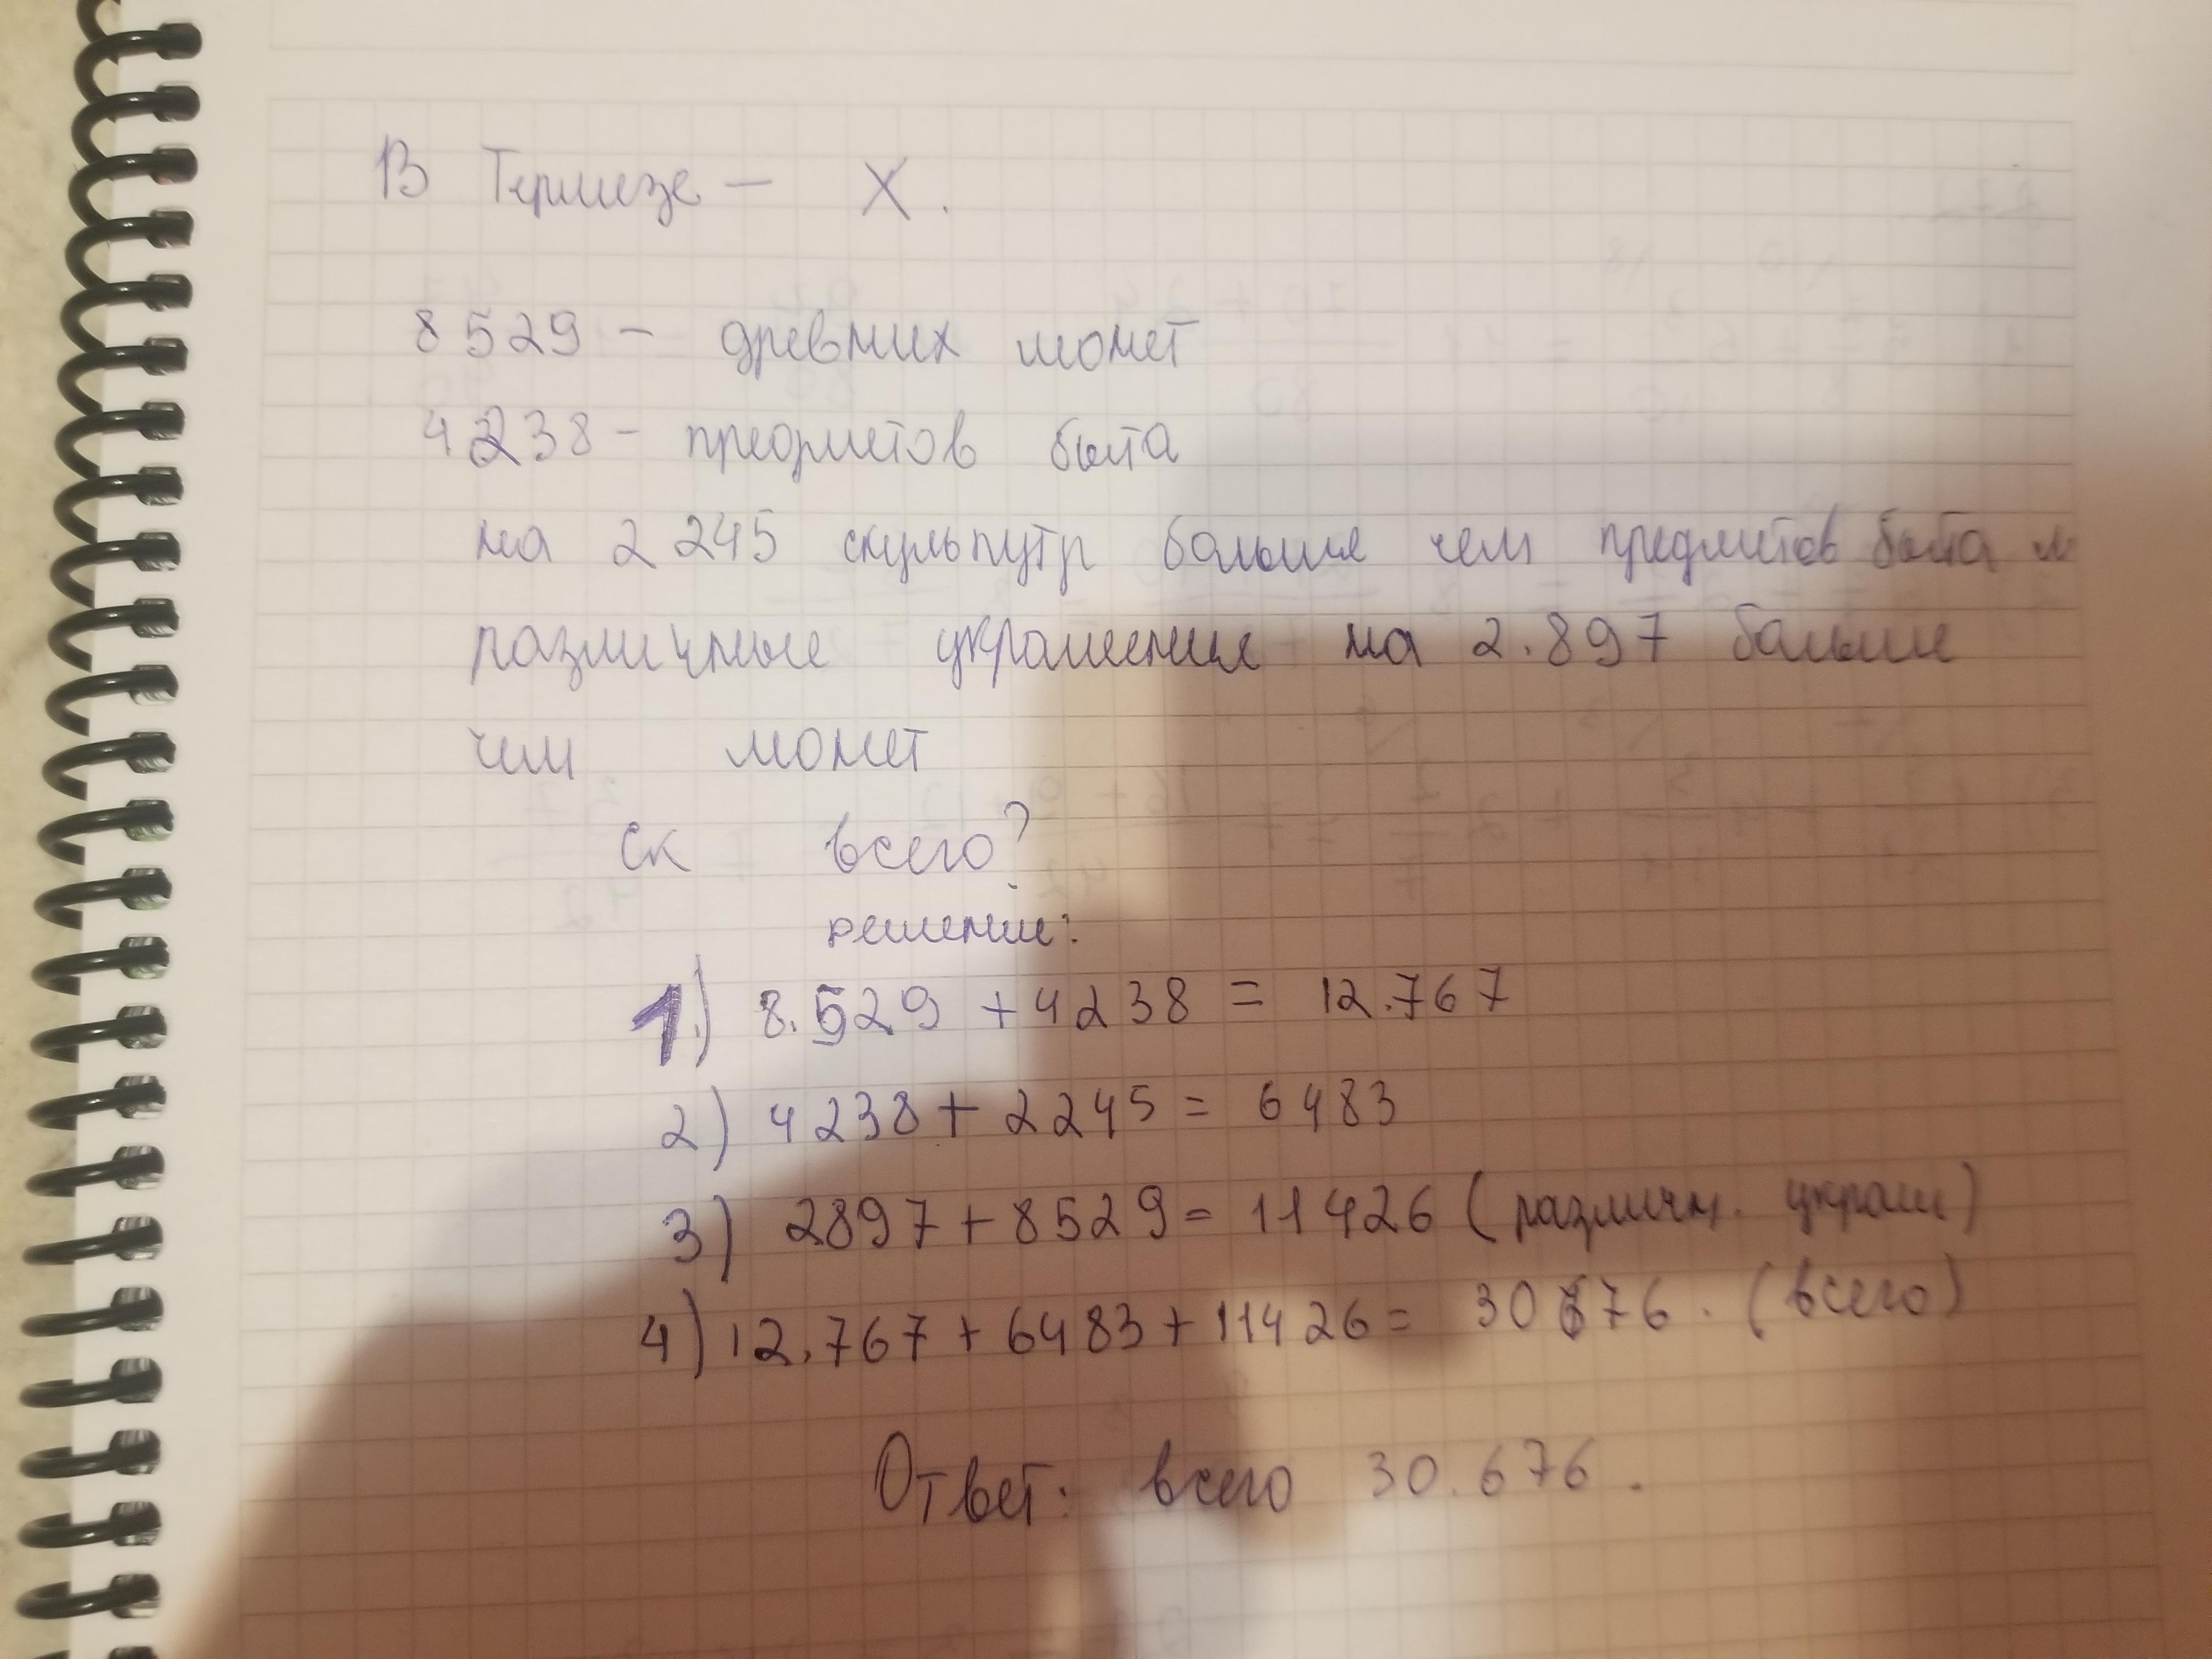 В Термезе — X.
8529 – древних монет
4238 – предметов быта
на 2 245 скульпутр больше чем предметов быта
различные украшения на 2.897 больше
чем монет
Ск всего?
решение:
1.) 8.529 + 4238 = 12.767
2) 4238 + 2245 = 6483
3) 2897 + 8529 = 11426 (различн. украш)
4) 12.767 + 6483 + 11426 = 30676. (всего)
Ответ: всего 30.676.